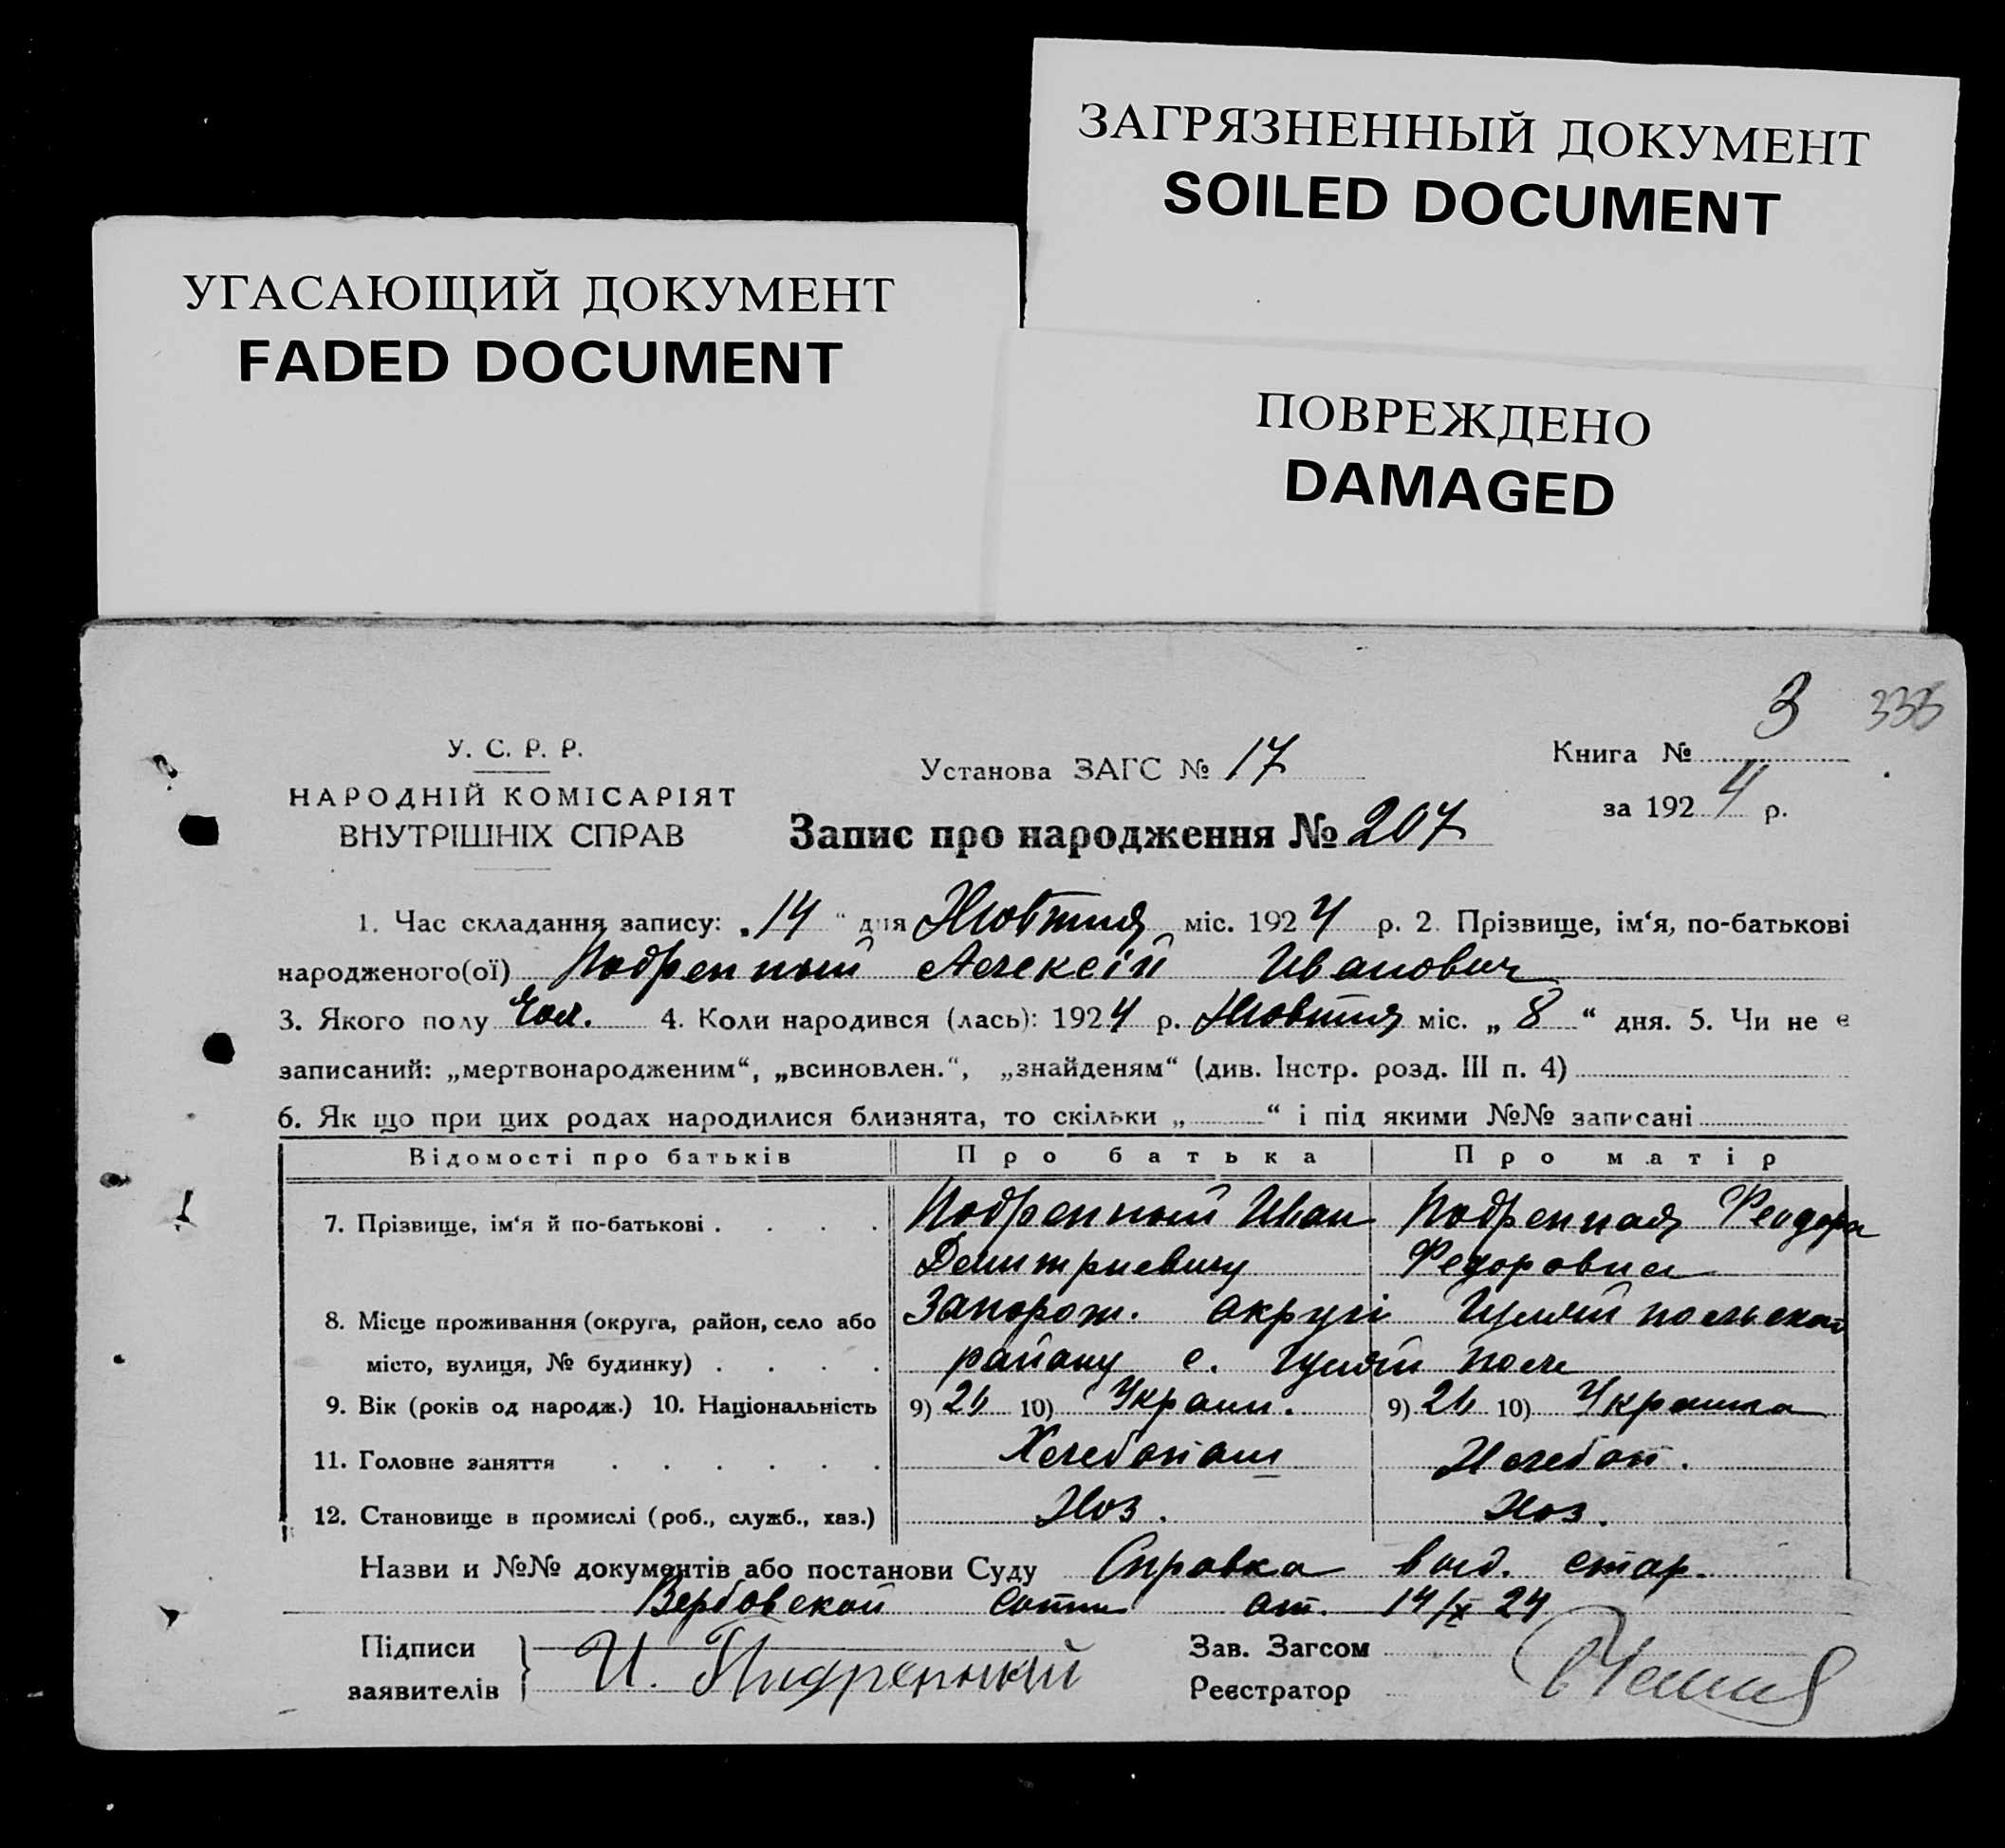 ЗАГРЯЗНЕННЫЙ ДОКУМЕНТ
SOILED DOCUMENT
УГАСАЮЩИЙ ДОКУМЕНТ
FADED DOCUMENT
ПОВРЕЖДЕНО
DAMAGED
3 335
У. С. Р. Р.
НАРОДНІЙ КОМІСАРІЯТ
ВНУТРІШНІХ СПРАВ
Установа ЗАГС № 17
Запис про народження № 207
Книга №
за 1924 р.
1. Час складання запису: „14“ дня Жовтня міс. 1924 р. 2. Прізвище, ім‘я, по-батькові
народженого(ої) Подренный Алексій Иванович
3. Якого полу Чол. 4. Коли народився (лась): 1924 р. Жовтня міс. „8“ дня. 5. Чи не є
записаний: „мертвонародженим“, „всиновлен.“, „знайденям“ (див. Інстр. розд. III п. 4)
6. Як що при цих родах народилися близнята, то скільки „ “ і під якими №№ записані
Відомості про батьків Про батька Про матір
7. Прізвище, ім‘я й по-батькові . . . . Подренный Иван Подренная Феодора
Дмитриевич Федоровна
8. Місце проживання (округа, район, село або Запорож. округі Гуляй польской
місто, вулиця, № будинку) . . . . району с. Гуляй Поле
9. Вік (років од народж.) 10. Національність 9) 26 10) Украин. 9) 26 10) Украинка
11. Головне заняття . . . . . . Хлебопаш Хлебоп.
12. Становище в промислі (роб., служб., хаз.) Хоз. Хоз.
Назви и №№ документів або постанови Суду Справка выд. стар.
Вербовской сотни от. 14/X 24
Підписи
заявителів И. Пидренный
Зав. Загсом
Реєстратор